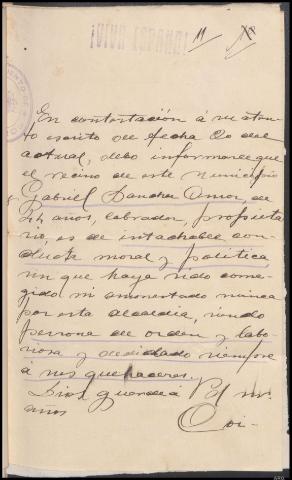 ¡VIVA ESPAÑA!
En contestación á su aten-
to escrito de fecha 20 del
actual, debo informarle que
el vecino de este Municipio
Gabriel Sanchez Amor, de
44 años, labrador, propieta
rio, es de intachable con
ducta moral y política,
sin que haya sido corre-
gido ni amonestado nunca
por esta alcaldia, siendo
persona de orden y labo
riosa y dedidado siempre
á sus quehaceres.
Dios guarde á Vd. ms.
anos